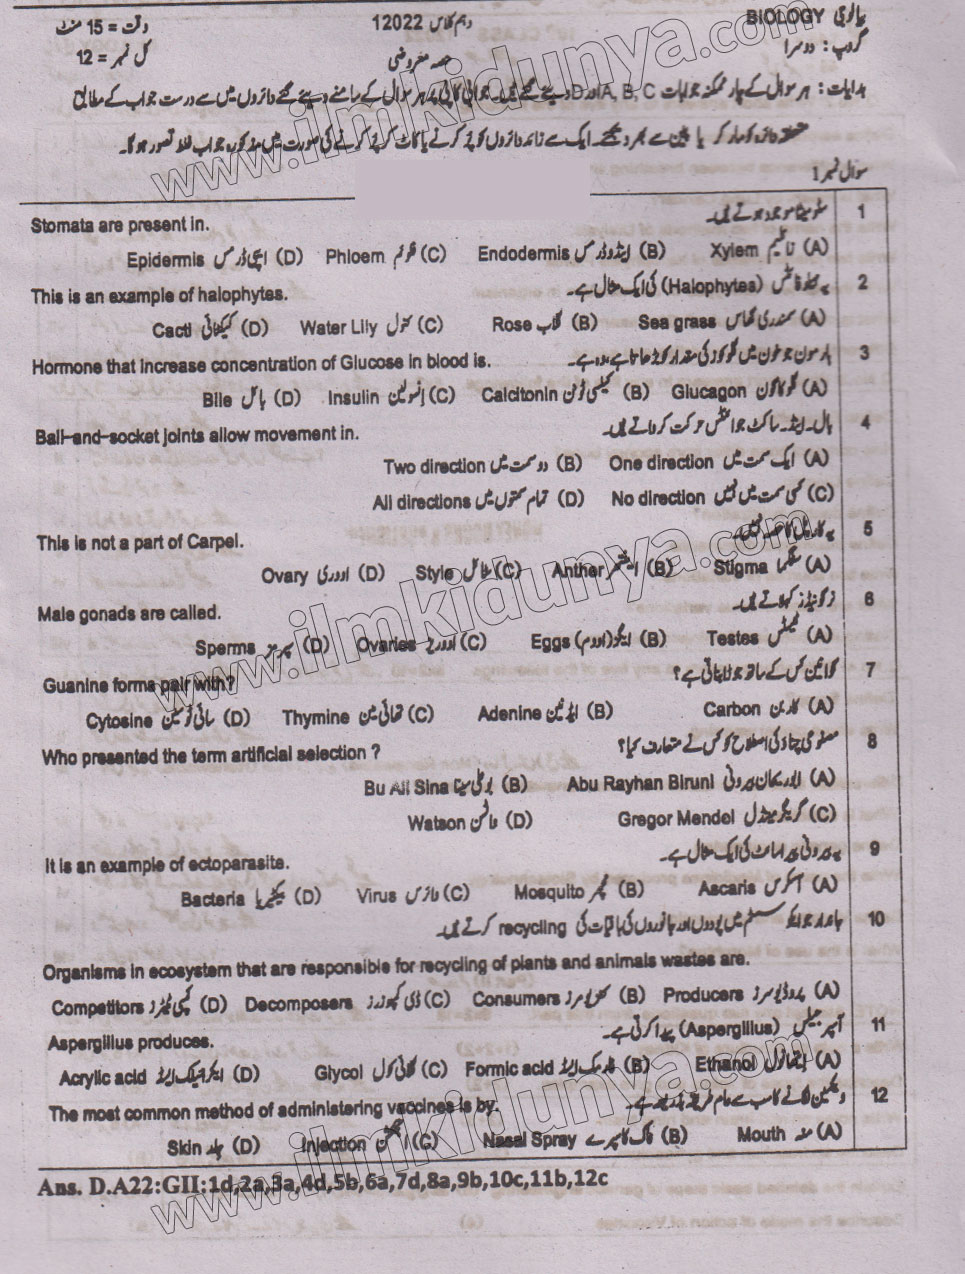 بیالوجی BIOLOGY
دہم کلاس 12022
وقت = 15 منٹ
گروپ : دوسرا
حصہ معروضی
کل نمبر = 12
ہدایات : ہر سوال کے چار ممکنہ جوابات A, B, C اور D دیئے گئے ہیں۔ جوابی کاپی پر ہر سوال کے سامنے دیئے گئے دائروں میں سے درست جواب کے مطابق
متعلقہ دائرہ کو مارکر یا پین سے بھر دیجئے۔ ایک سے زائد دائروں کو پُر کرنے یا کاٹ کر پُر کرنے کی صورت میں مذکورہ جواب غلط تصور ہوگا۔
سوال نمبر 1
1 سٹومیٹا موجود ہوتے ہیں۔
Stomata are present in.
(A) زائیلم Xylem (B) اینڈوڈرمس Endodermis (C) فلوئم Phloem (D) اپی ڈرمس Epidermis
2 یہ ہیلوفائٹس (Halophytes) کی ایک مثال ہے۔
This is an example of halophytes.
(A) سمندری گھاس Sea grass (B) گلاب Rose (C) کنول Water Lily (D) کیکٹائی Cacti
3 ہارمون جو خون میں گلوکوز کی مقدار کو بڑھاتا ہے وہ ہے۔
Hormone that increase concentration of Glucose in blood is.
(A) گلوکاگون Glucagon (B) کیلسی ٹونن Calcitonin (C) انسولین Insulin (D) بائل Bile
4 بال۔اینڈ۔ساکٹ جوائنٹس حرکت کرواتے ہیں۔
Ball-and-socket joints allow movement in.
(A) ایک سمت میں One direction (B) دو سمت میں Two direction
(C) کسی سمت میں نہیں No direction (D) تمام سمتوں میں All directions
5 یہ کارپل کا حصہ نہیں۔
This is not a part of Carpel.
(A) سٹگما Stigma (B) اینتھر Anther (C) سٹائل Style (D) اووری Ovary
6 نر گونیڈز کہلاتے ہیں۔
Male gonads are called.
(A) ٹیسٹیس Testes (B) ایگز (اووم) Eggs (C) اووریز Ovaries (D) سپرمز Sperms
7 گوانین کس کے ساتھ جوڑا بناتی ہے؟
Guanine forms pair with?
(A) کاربن Carbon (B) ایڈنین Adenine (C) تھائی مین Thymine (D) سائی ٹوسین Cytosine
8 مصنوعی چناؤ کی اصطلاح کو کس نے متعارف کیا؟
Who presented the term artificial selection ?
(A) ابو ریحان بیرونی Abu Rayhan Biruni (B) بو علی سینا Bu Ali Sina
(C) گریگر مینڈل Gregor Mendel (D) واٹسن Watson
9 یہ بیرونی پیراسائٹ کی ایک مثال ہے۔
It is an example of ectoparasite.
(A) اسکیرس Ascaris (B) مچھر Mosquito (C) وائرس Virus (D) بیکٹیریا Bacteria
10 جاندار جو ایکو سسٹم میں پودوں اور جانوروں کی باقیات کی recycling کرتے ہیں۔
Organisms in ecosystem that are responsible for recycling of plants and animals wastes are.
(A) پروڈیوسرز Producers (B) کنزیومرز Consumers (C) ڈی کمپوزرز Decomposers (D) کمپی ٹیٹرز Competitors
11 اسپرجیلس (Aspergillus) پیدا کرتی ہے۔
Aspergillus produces.
(A) ایتھانول Ethanol (B) فارمک ایسڈ Formic acid (C) گلائی کول Glycol (D) ایکرائیلک ایسڈ Acrylic acid
12 ویکسین لگانے کا سب سے عام طریقہ بذریعہ ہے۔
The most common method of administering vaccines is by.
(A) منہ Mouth (B) ناک کا سپرے Nasal Spray (C) انجکشن Injection (D) جلد Skin
Ans. D.A22:GII:1d,2a,3a,4d,5b,6a,7d,8a,9b,10c,11b,12c
www.ilmkidunya.com
www.ilmkidunya.com
www.ilmkidunya.com